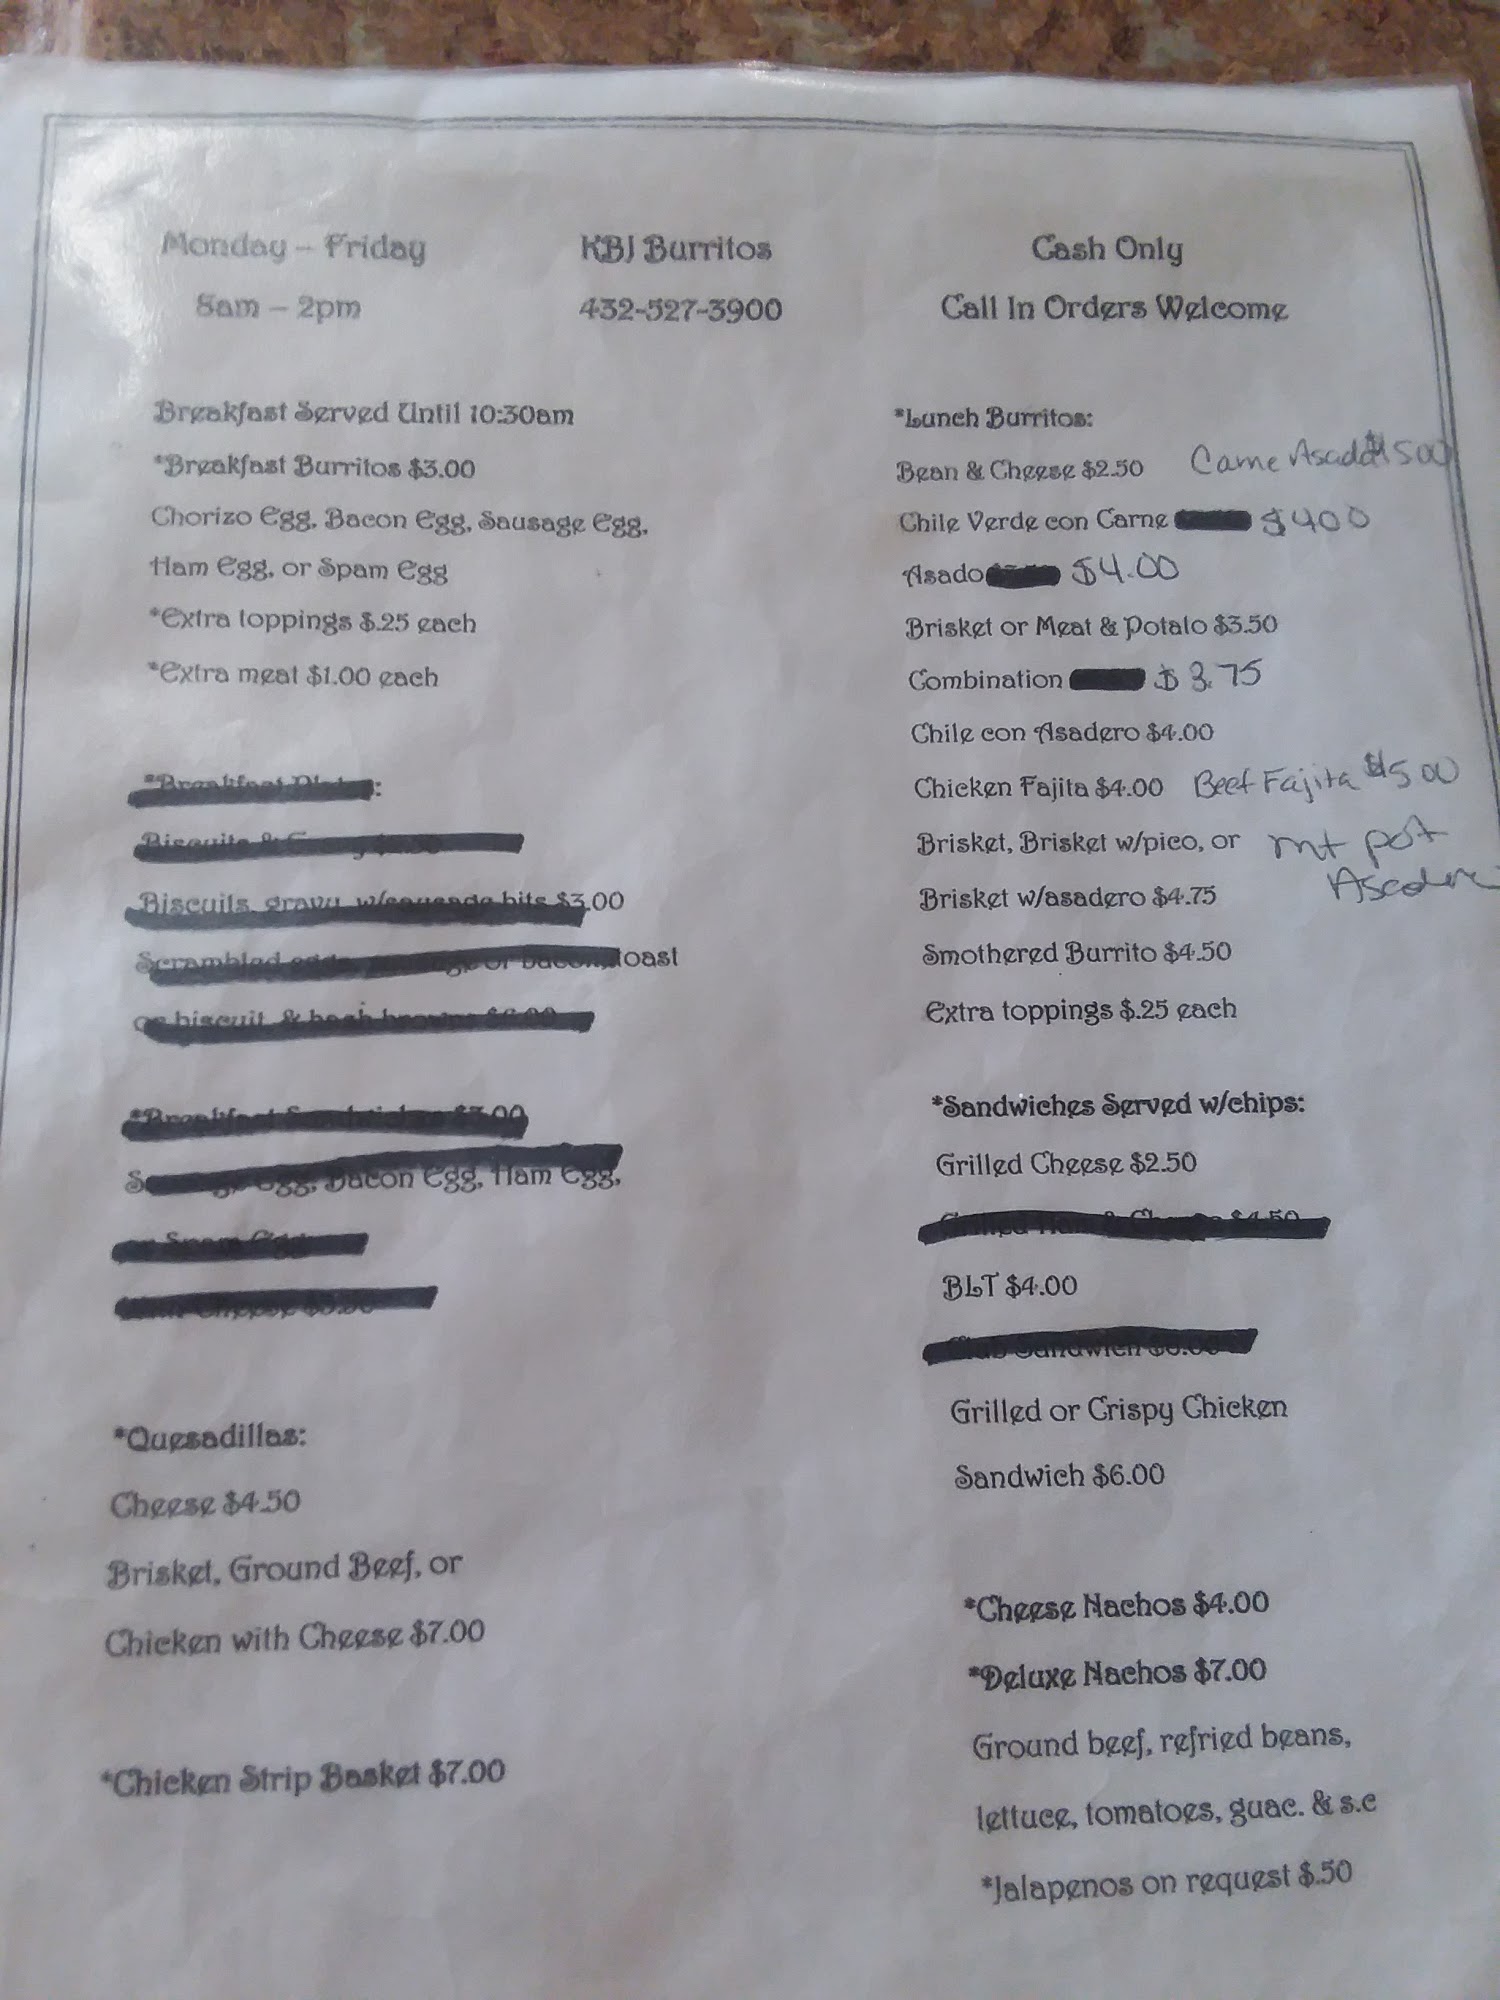 Monday – Friday
8am – 2pm
KBJ Burritos
432-527-3900
Cash Only
Call In Orders Welcome
Breakfast Served Until 10:30am
*Breakfast Burritos $3.00
Chorizo Egg, Bacon Egg, Sausage Egg,
Ham Egg, or Spam Egg
*Extra toppings $.25 each
*Extra meat $1.00 each
Biscuits, gravy, w/sausage bits $3.00
toast
Bacon Egg, Ham Egg,
*Quesadillas:
Cheese $4.50
Brisket, Ground Beef, or
Chicken with Cheese $7.00
*Chicken Strip Basket $7.00
*Lunch Burritos:
Bean & Cheese $2.50 Carne Asada $5.00
Chile Verde con Carne $400
Asado $4.00
Brisket or Meat & Potato $3.50
Combination $3.75
Chile con Asadero $4.00
Chicken Fajita $4.00 Beef Fajita $5 00
Brisket, Brisket w/pico, or mt pot
Brisket w/asadero $4.75
Smothered Burrito $4.50
Extra toppings $.25 each
*Sandwiches Served w/chips:
Grilled Cheese $2.50
BLT $4.00
Grilled or Crispy Chicken
Sandwich $6.00
*Cheese Nachos $4.00
*Deluxe Nachos $7.00
Ground beef, refried beans,
lettuce, tomatoes, guac. & s.c
*Jalapenos on request $.50